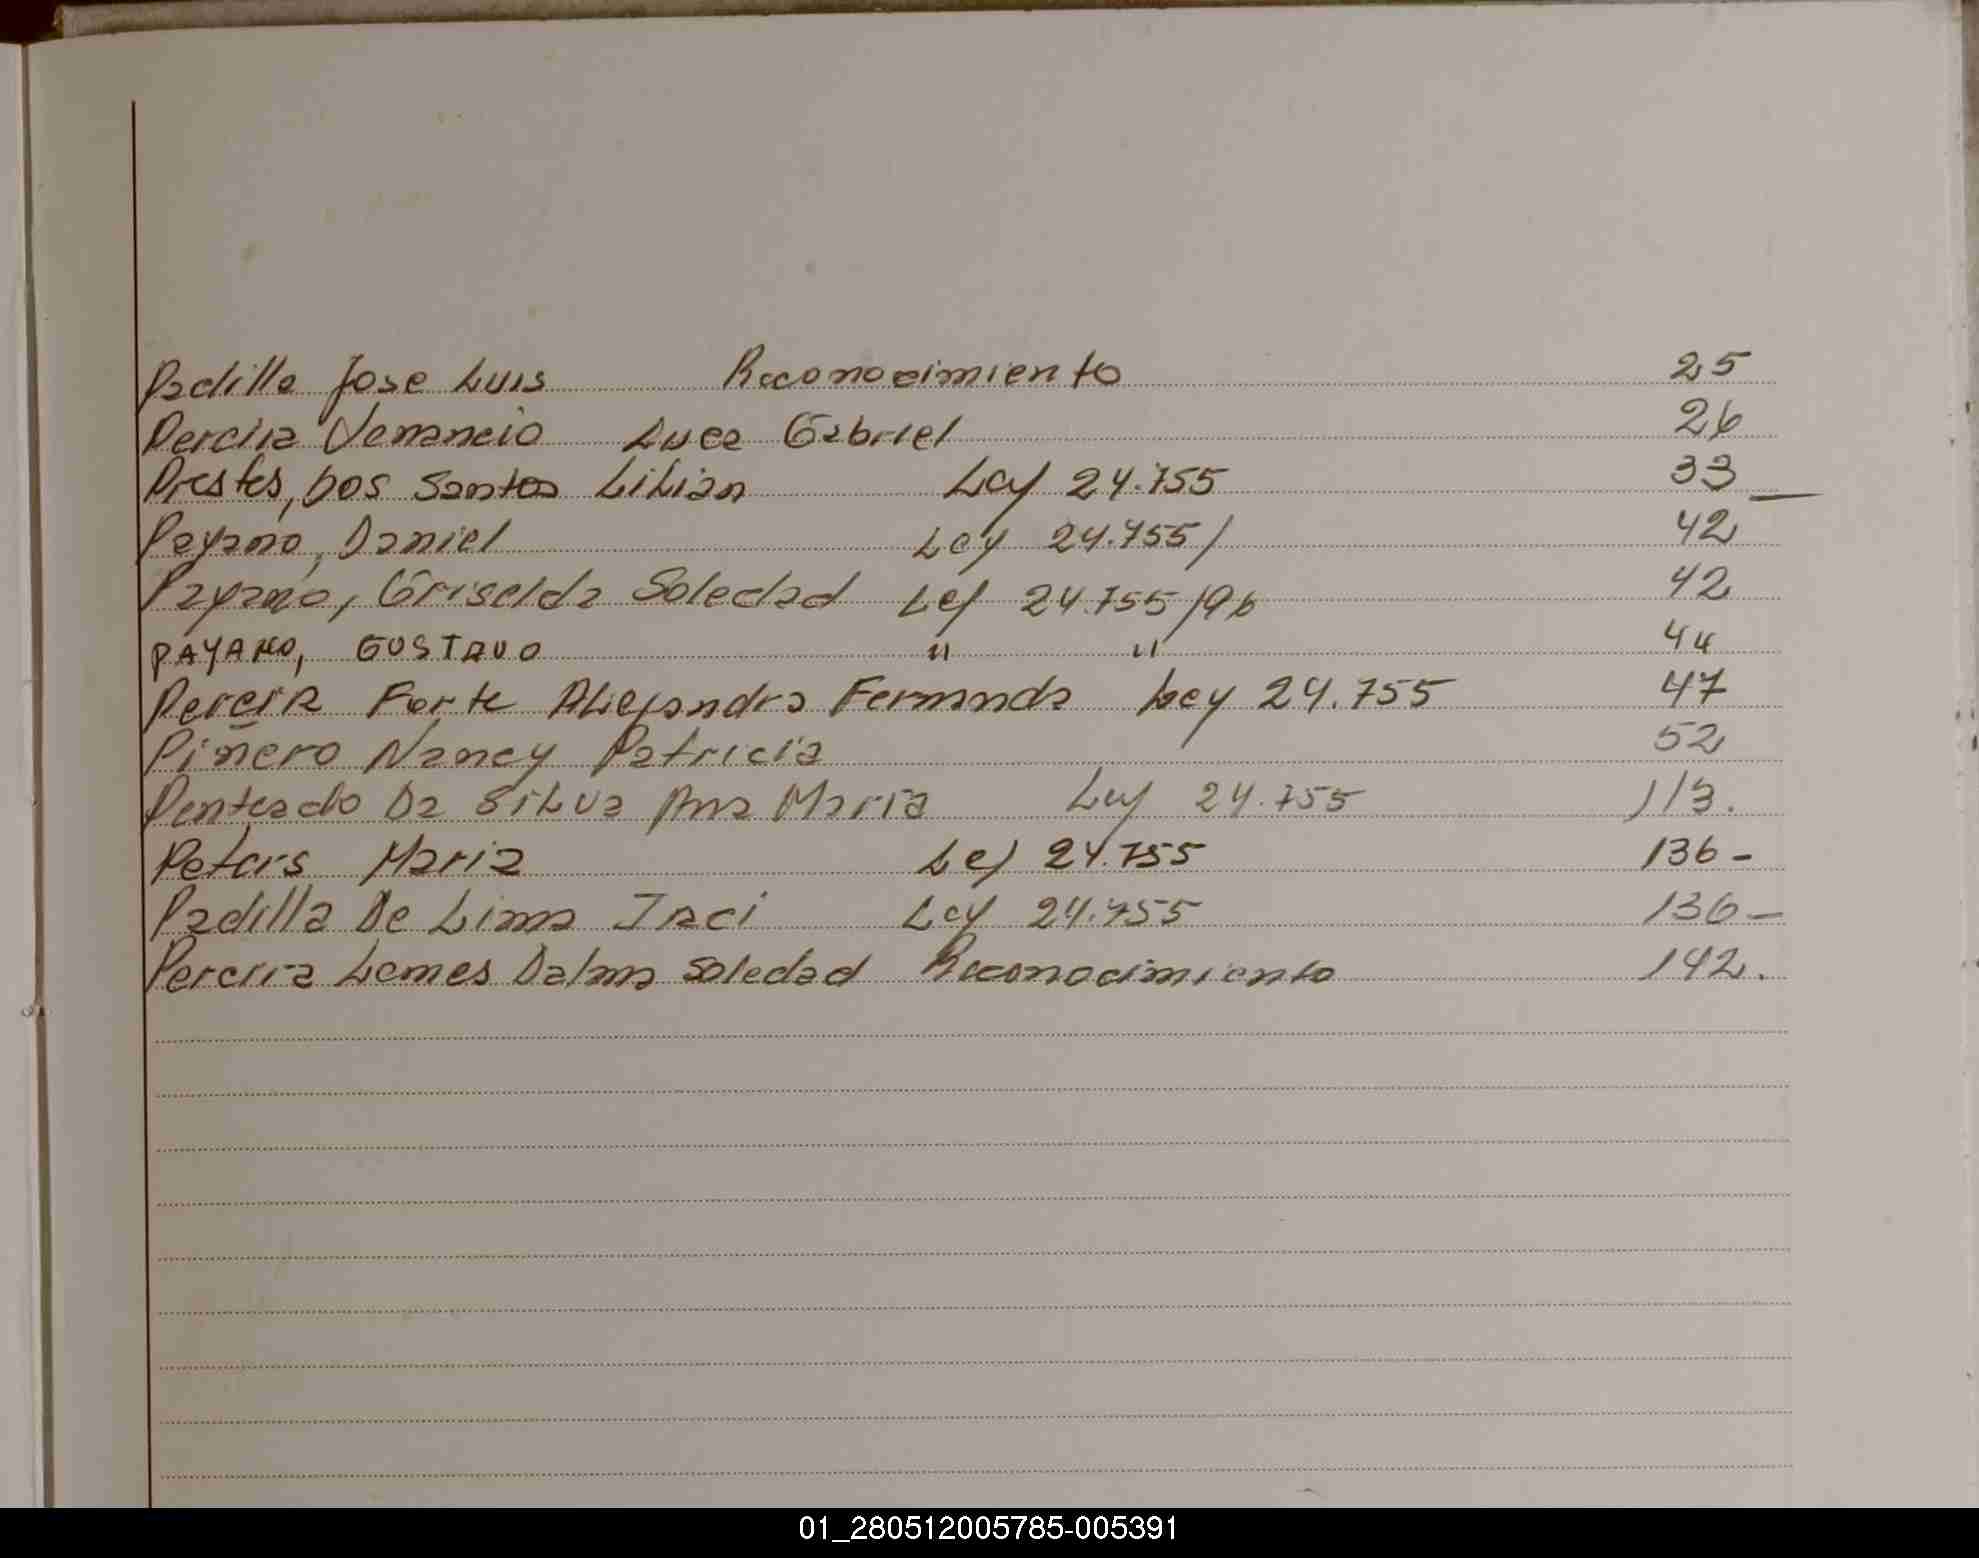 Padilla Jose Luis Reconocimiento 25
Pereira Venancio Luca Gabriel 26
Prestes, Dos Santos Lilian Ley 24.755 33
Payano, Daniel Ley 24.755/ 42
Payano, Griselda Soledad Ley 24.755/96 42
PAYANO, GUSTAVO " " 44
Pereira Forte Alejandra Fernanda Ley 24.755 47
Piñero Nancy Patricia 52
Penteado Da Silva Ana Maria Ley 24.755 113.
Peters Maria Ley 24.755 136-
Padilla De Lima Iraci Ley 24.755 136-
Pereira Lemes Dalma Soledad Reconocimiento 142.
01_280512005785-005391